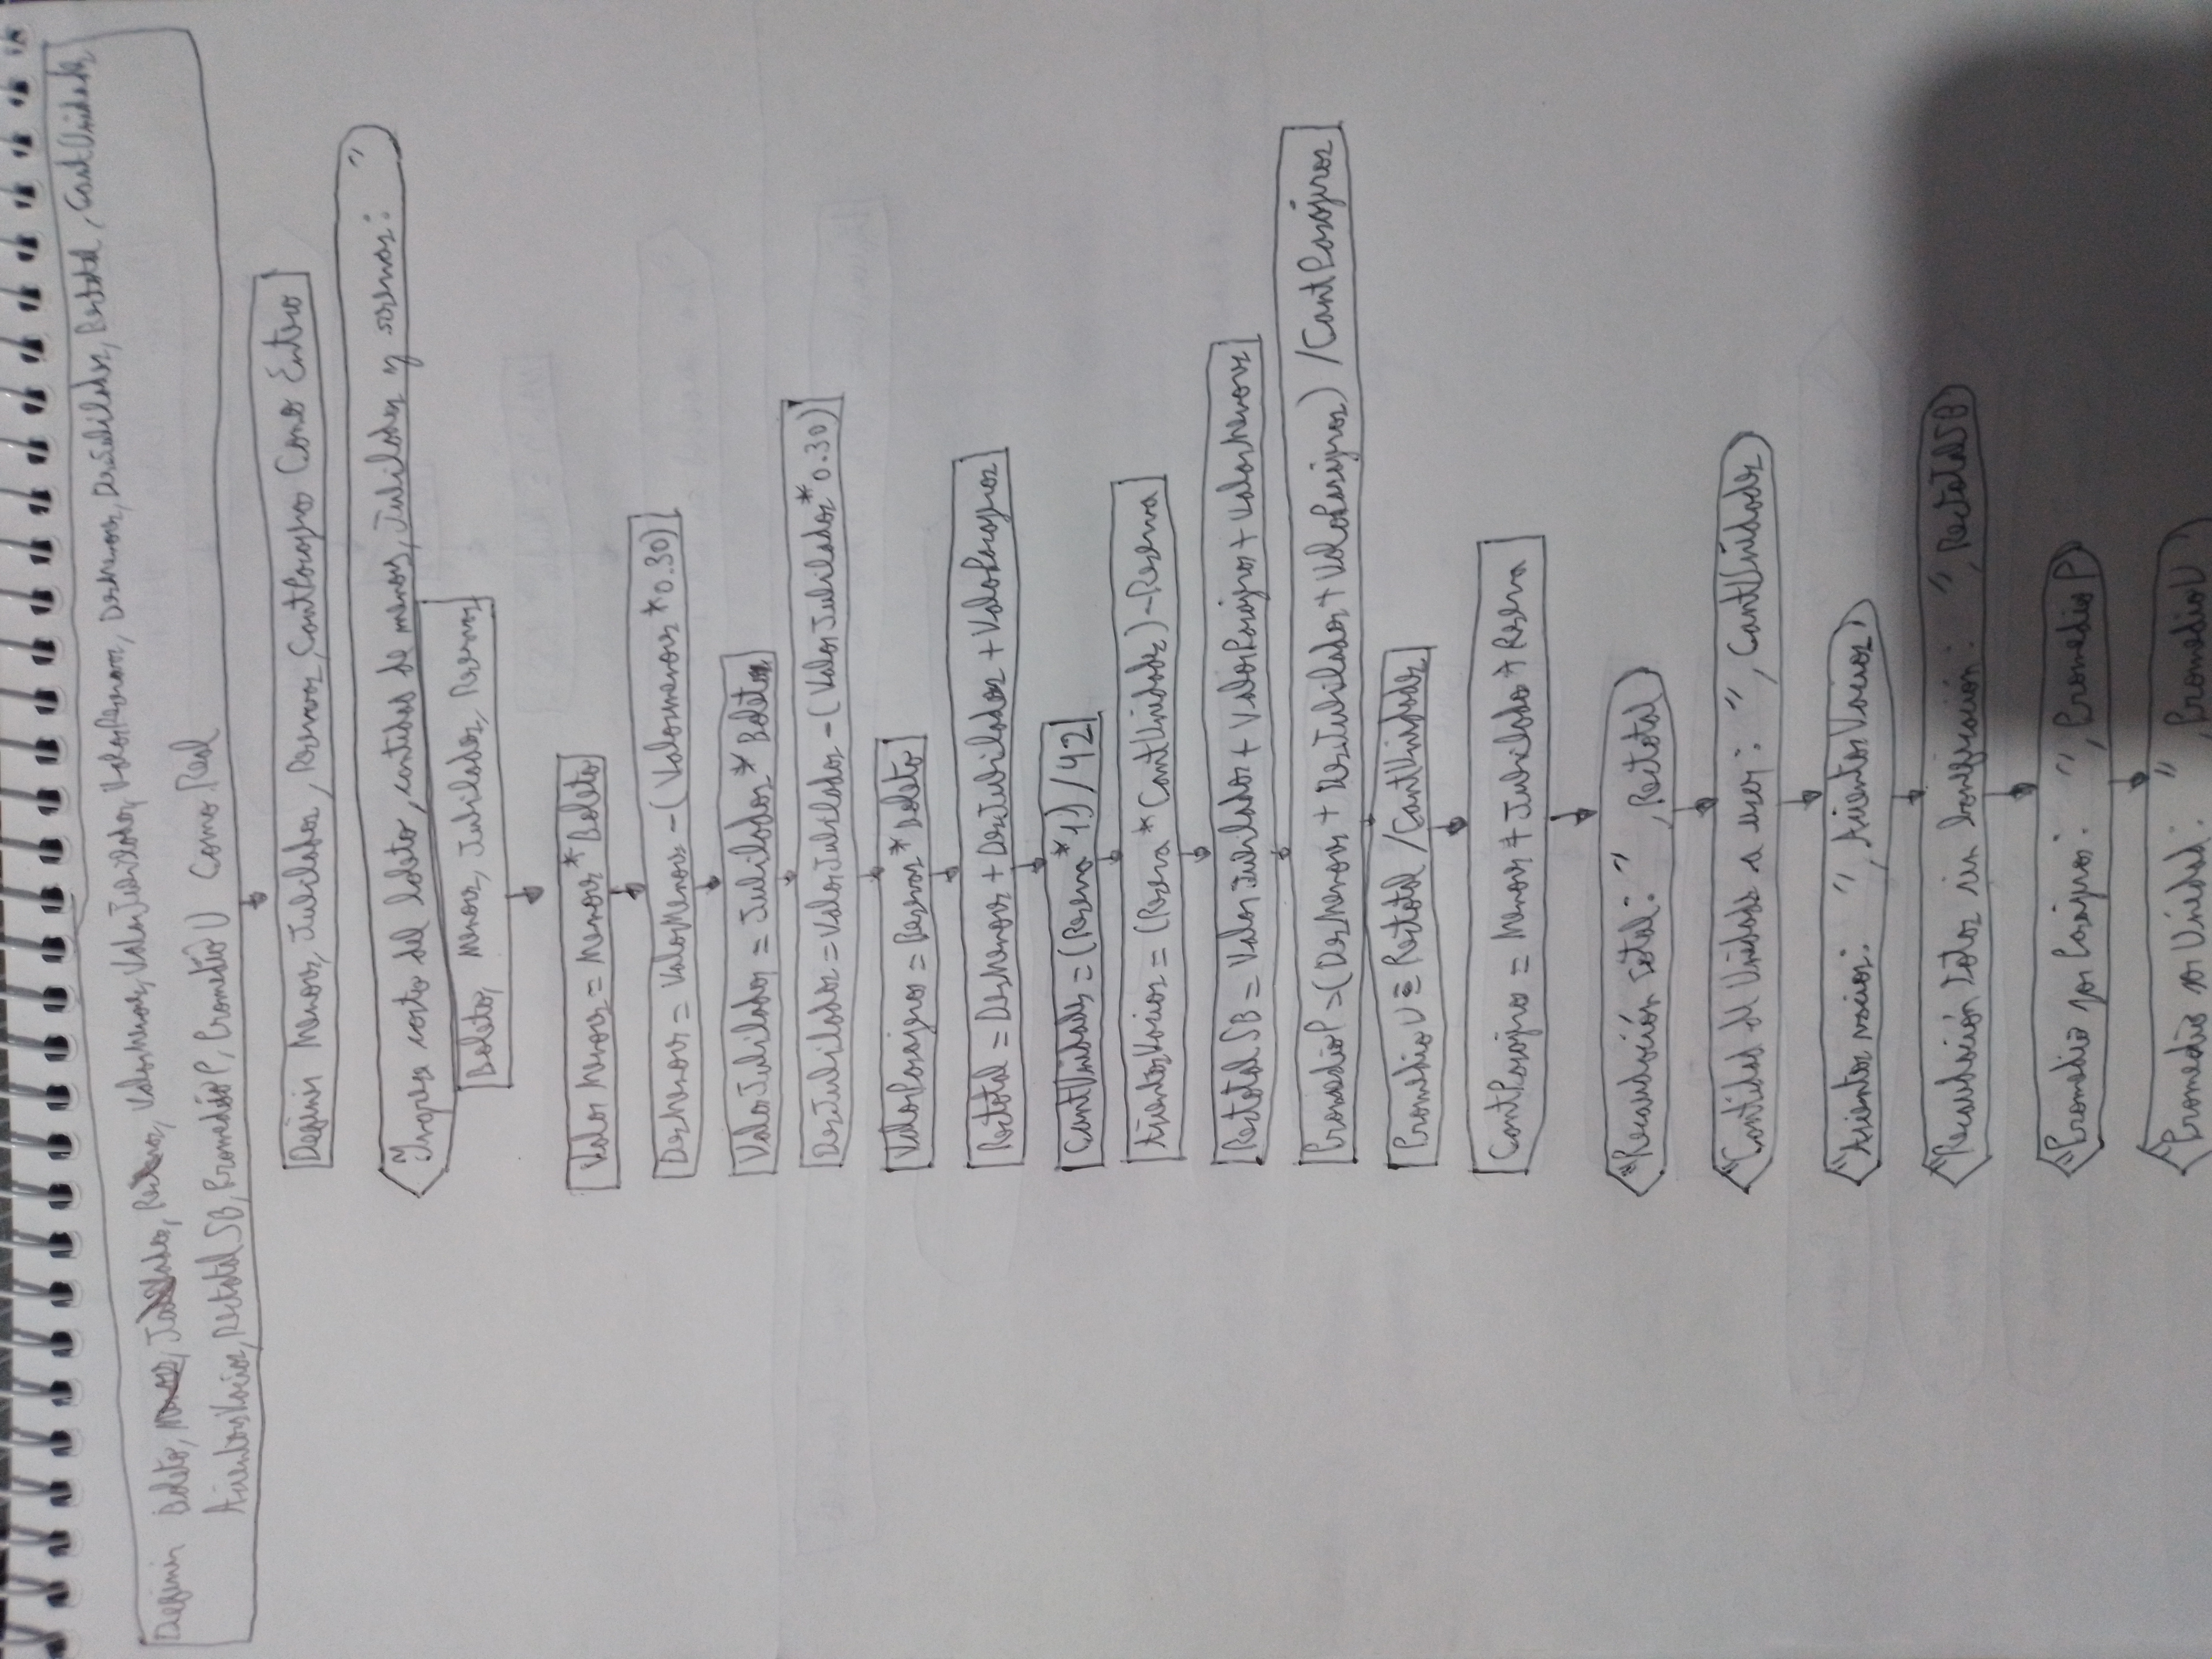 Definir Boleto, Menores, Jubilados, Reservas, ValorMenores, ValorJubilados, ValorReservas, DesMenores, DesJubilados, Rectotal, CantUnidades
AsientosVacios, Rectotal SB, PromedioP, Promedio U Como Real
Definir Menores, Jubilados, Reservas, CantPasajeros Como Entero
"Ingrese costo del boleto, cantidad de menores, Jubilados y reservas: "
Boleto, Menores, Jubilados, Reservas
Valor Menores = Menores * Boleto
DesMenores = ValorMenores - (Valormenores * 0.30)
ValorJubilados = Jubilados * Boleto
DesJubilados = ValorJubilados - (ValorJubilados * 0.30)
ValorPasajeros = Reservas * Boleto
Rectotal = DesMenores + DesJubilados + ValorPasajeros
CantUnidades = (Reserva * 1) / 42
AsientosVacios = (Reserva * CantUnidades) - Reserva
Rectotal SB = ValorJubilados + ValorPasajeros + ValorMenores
PromedioP = (DesMenores + DesJubilados + ValorPasajeros) / CantPasajeros
Promedio U = Rectotal / CantUnidades
CantPasajeros = Menores + Jubilados + Reserva
"Recaudación total: ", Rectotal
"Cantidad de Unidades a usar: ", CantUnidades
"Asientos vacios: ", AsientosVacios
"Recaudación total sin bonificación: ", RectotalSB
"Promedio por Pasajeros: ", PromedioP
"Promedio por Unidad: ", PromedioU